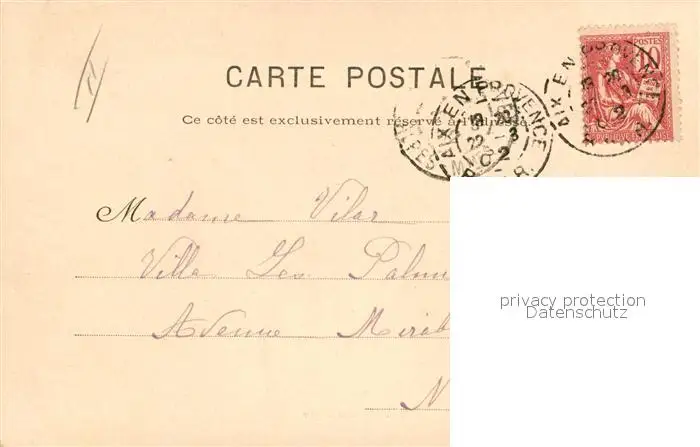 CARTE POSTALE
Ce côté est exclusivement réservé à l'adresse
AIX EN PROVENCE
AIX EN PROVENCE
10
POSTES
Madame Vilar
Villa Les Palm
Avenue Mirab
N
privacy protection
Datenschutz